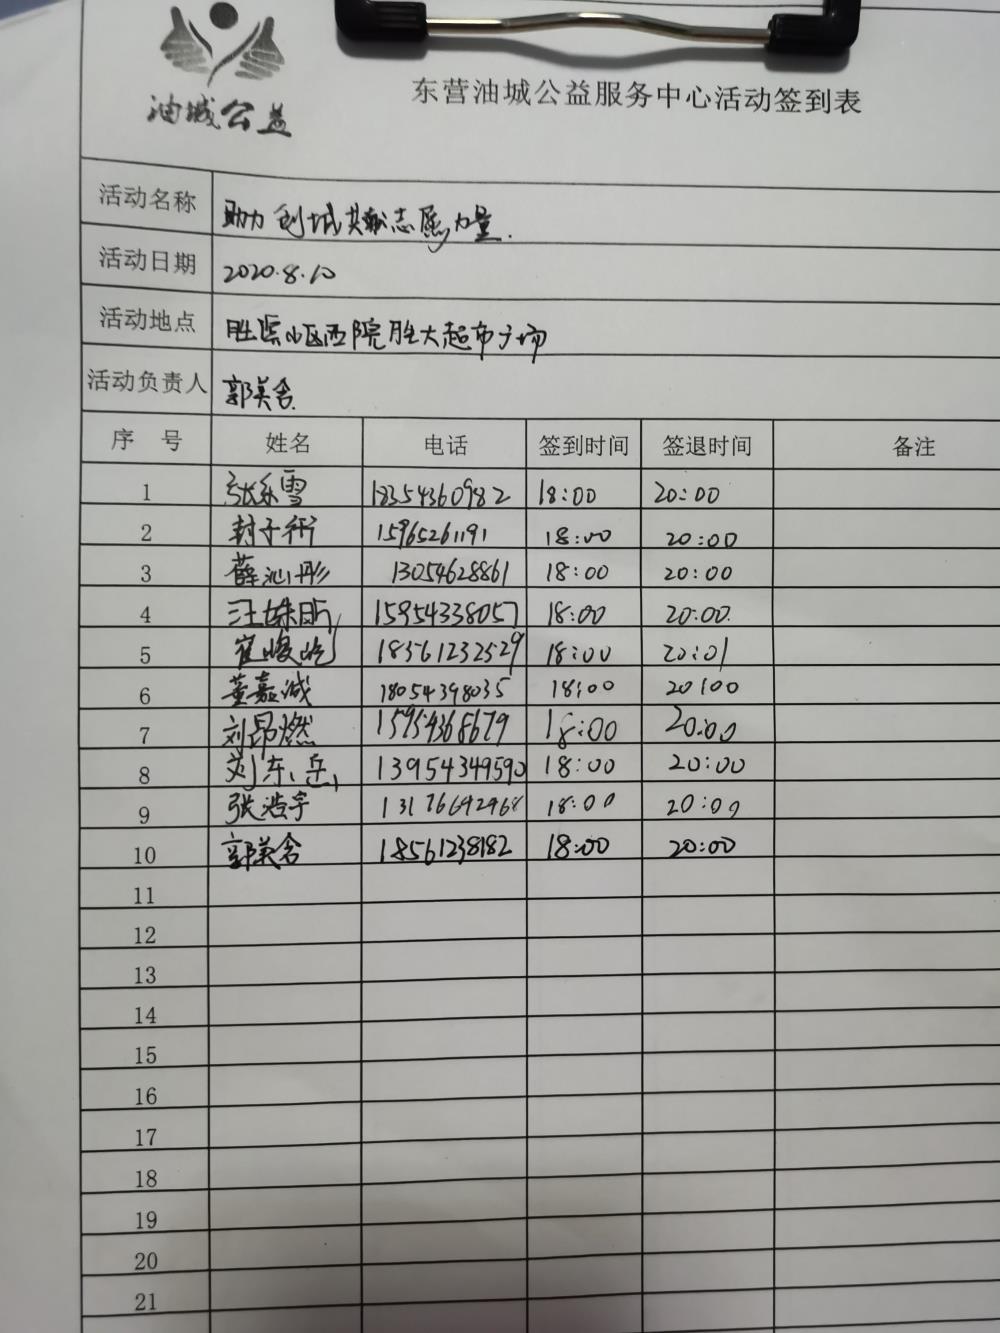 油城公益
东营油城公益服务中心活动签到表
活动名称 助力创城共献志愿力量.
活动日期 2020.8.10
活动地点 胜滨小区西院胜大超市广场
活动负责人 郭美含
序 号 姓名 电话 签到时间 签退时间 备注
1 张乐雪 18354360982 18:00 20:00
2 封子衎 15965261191 18:00 20:00
3 薛沁彤 13054628861 18:00 20:00
4 汪姝昕 15954338057 18:00 20:00.
5 崔峻屹 18561232529 18:00 20:01
6 董嘉诚 18054398035 18:00 20:00
7 刘昂燃 15954368679 18:00 20:00
8 刘东岳 13954349590 18:00 20:00
9 张浩宇 13176692968 18:00 20:00
10 郭美含 18561238182 18:00 20:00
11
12
13
14
15
16
17
18
19
20
21